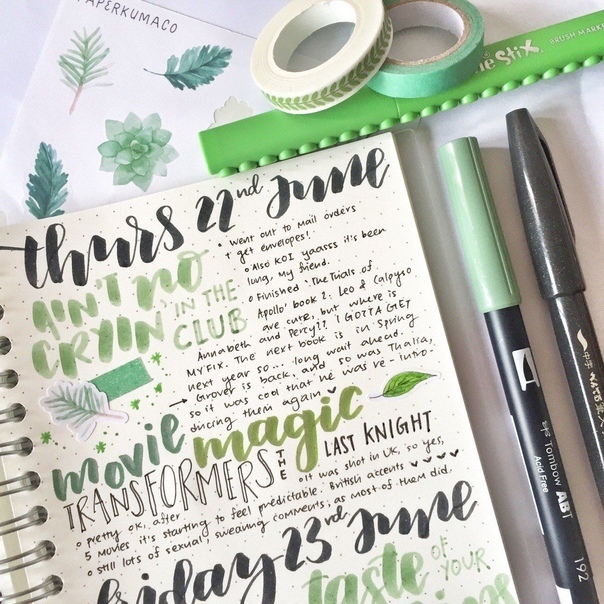 PAPERKUMACO
STIX
BRUSH MARK
thurs 22nd June
AIN'T NO
CRYIN' IN THE
CLUB
• went out to mail orders
+ get envelopes!
• Also KOI yaasss it's been
long, my friend.
• Finished 'The Trials of
Apollo' book 2: Leo & Calypso
are cute, but where is
Annabeth and Percy?? I GOTTA GET
MY FIX. The next book is in Spring
next year so... long wait ahead.
→ Grover is back, and so was Thalia,
so it was cool that he was re-intro-
ducing them again
movie magic
TRANSFORMERS THE LAST KNIGHT
• It was shot in UK, so yes,
British accents
• pretty ok, after
5 movies it's starting to feel predictable.
• still lots of sexual swearing comments, as most of them did.
friday 23rd June
taste OF
YOUR
Tombow ABT
Acid Free
192